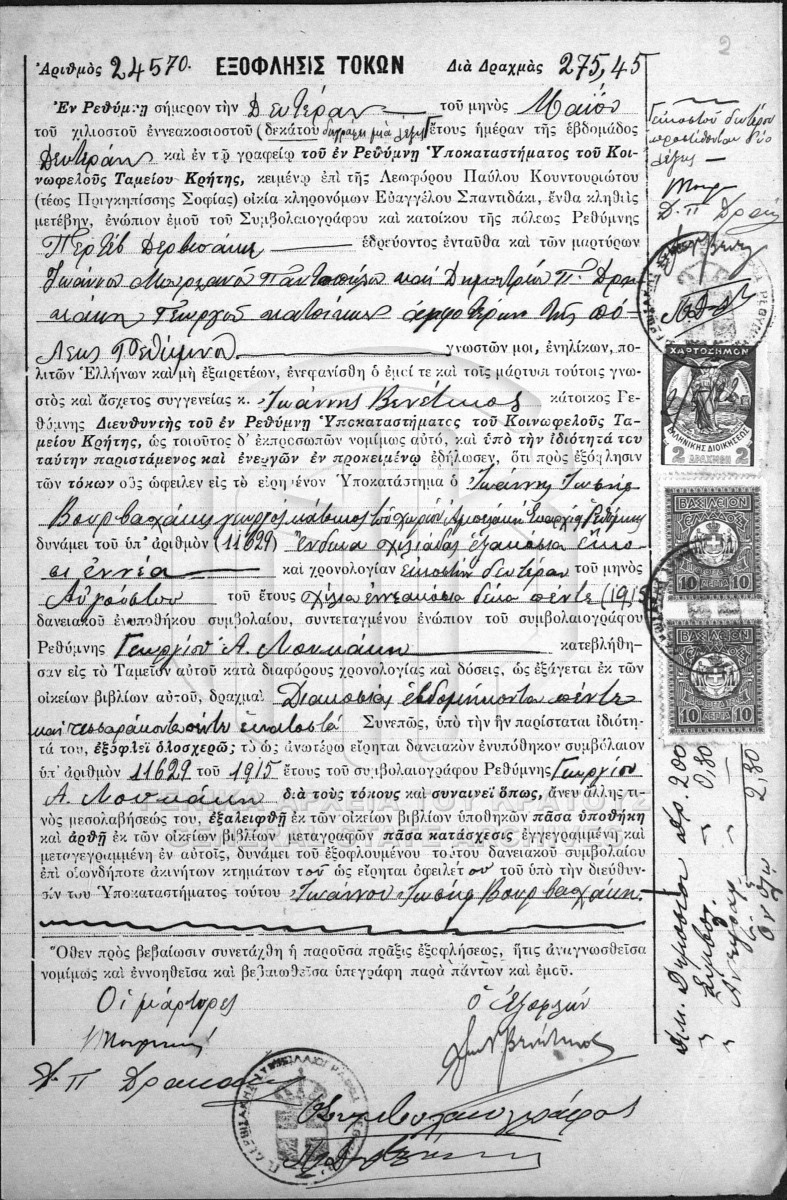 2
Ἀριθμὸς 24570. ΕΞΟΦΛΗΣΙΣ ΤΟΚΩΝ Διὰ Δραχμὰς 275,45
Ἐν Ρεθύμνῃ σήμερον τὴν Δευτέραν τοῦ μηνὸς Μαΐου
τοῦ χιλιοστοῦ ἐννεακοσιοστοῦ (δεκάτου ἔτους ἡμέραν τῆς ἑβδομάδος
Δευτέραν καὶ ἐν τῷ γραφείῳ τοῦ ἐν Ρεθύμνῃ Ὑποκαταστήματος τοῦ Κοι-
νωφελοῦς Ταμείου Κρήτης, κειμένῳ ἐπὶ τῆς Λεωφόρου Παύλου Κουντουριώτου
(τέως Πριγκηπίσσης Σοφίας) οἰκίᾳ κληρονόμων Εὐαγγέλου Σπαντιδάκι, ἔνθα κληθεὶς
μετέβην, ἐνώπιον ἐμοῦ τοῦ Συμβολαιογράφου καὶ κατοίκου τῆς πόλεως Ρεθύμνης
Περτέβ Δερβισάκη ἑδρεύοντος ἐνταῦθα καὶ τῶν μαρτύρων
Ἰωάννου παντοπώλου καὶ Δημητρίου Π. Δρα
κάκη Γεωργοῦ κατοίκων ἀμφοτέρων τῆς πό
λεως Ρεθύμνης γνωστῶν μοι, ἐνηλίκων, πο-
λιτῶν Ἑλλήνων καὶ μὴ ἐξαιρετέων, ἐνεφανίσθη ὁ ἐμοί τε καὶ τοῖς μάρτυσι τούτοις γνω-
στὸς καὶ ἄσχετος συγγενείας κ. Ἰωάννης Βενέτικος κάτοικος Ρε-
θύμνης Διευθυντὴς τοῦ ἐν Ρεθύμνῃ Ὑποκαταστήματος τοῦ Κοινωφελοῦς Τα-
μείου Κρήτης, ὡς τοιοῦτος δ' ἐκπροσωπῶν νομίμως αὐτό, καὶ ὑπὸ τὴν ἰδιότητά του
ταύτην παριστάμενος καὶ ἐνεργῶν ἐν προκειμένῳ ἐδήλωσεν, ὅτι πρὸς ἐξόφλησιν
τῶν τόκων οὓς ὤφειλεν εἰς τὸ εἰρημένον Ὑποκατάστημα ὁ Ἰωάννης Ἰωσὴφ
Βουρβαχάκης γεωργὸς κάτοικος τοῦ χωρίου Ἐπαρχίας Ρεθύμνης
δυνάμει τοῦ ὑπ' ἀριθμὸν (11629) ἕνδεκα χιλιάδας ἑξακόσια εἴκο
σι ἐννέα καὶ χρονολογίαν εἰκοστὴν δευτέραν τοῦ μηνὸς
Αὐγούστου τοῦ ἔτους χίλια ἐννεακόσια δέκα πέντε (1915
δανειακοῦ ἐνυποθήκου συμβολαίου, συντεταγμένου ἐνώπιον τοῦ συμβολαιογράφου
Ρεθύμνης Γεωργίου Ἀ. Μουκάκη κατεβλήθη-
σαν εἰς τὸ Ταμεῖον αὐτοῦ κατὰ διαφόρους χρονολογίας καὶ δόσεις, ὡς ἐξάγεται ἐκ τῶν
οἰκείων βιβλίων αὐτοῦ, δραχμαὶ Διακόσιαι ἑβδομήκοντα πέντε
καὶ τεσσαράκοντα πέντε ἑκατοστά Συνεπῶς, ὑπὸ τὴν ἣν παρίσταται ἰδιότη-
τά του, ἐξοφλεῖ ὁλοσχερῶς τὸ ὡς ἀνωτέρω εἴρηται δανειακὸν ἐνυπόθηκον συμβόλαιον
ὑπ' ἀριθμὸν 11629 τοῦ 1915 ἔτους τοῦ συμβολαιογράφου Ρεθύμνης Γεωργίου
Ἀ. Μουκάκη διὰ τοὺς τόκους καὶ συναινεῖ ὅπως, ἄνευ ἄλλης τι-
νὸς μεσολαβήσεώς του, ἐξαλειφθῇ ἐκ τῶν οἰκείων βιβλίων ὑποθηκῶν πᾶσα ὑποθήκη
καὶ ἀρθῇ ἐκ τῶν οἰκείων βιβλίων μεταγραφῶν πᾶσα κατάσχεσις ἐγγεγραμμένη καὶ
μεταγεγραμμένη ἐν αὐτοῖς, δυνάμει τοῦ ἐξοφλουμένου τούτου δανειακοῦ συμβολαίου
ἐπὶ οἱωνδήποτε ἀκινήτων κτημάτων τοῦ ὡς εἴρηται ὀφειλέτου τοῦ ὑπὸ τὴν διεύθυν-
σίν του Ὑποκαταστήματος τούτου Ἰωάννου Ἰωσὴφ Βουρβαχάκη.
Ὅθεν πρὸς βεβαίωσιν συνετάχθη ἡ παροῦσα πρᾶξις ἐξοφλήσεως, ἥτις ἀναγνωσθεῖσα
νομίμως καὶ ἐννοηθεῖσα καὶ βεβαιωθεῖσα ὑπεγράφη παρὰ πάντων καὶ ἐμοῦ.
Οἱ μάρτυρες ὁ Ἐξοφλῶν
Δ. Π Δρακάκης
Ὁ συμβολαιογράφος
εἰκοστοῦ δευτέρου
προστίθενται δύο
λέξεις
Δ. Π Δρακ
ΧΑΡΤΟΣΗΜΟΝ
ΕΛΛΗΝΙΚΗΣ ΔΙΟΙΚΗΣΕΩΣ
2 ΔΡΑΧΜΑΙ 2
ΒΑΣΙΛΕΙΟΝ
ΕΛΛΑΔΟΣ
10 ΛΕΠΤΑ 10
ΒΑΣΙΛΕΙΟΝ
ΕΛΛΑΔΟΣ
10 ΛΕΠΤΑ 10
Δημοσίου Δρ. 2.00
0,80
2,80
ΓΕΝΙΚΑ ΑΡΧΕΙΑ ΤΟΥ ΚΡΑΤΟΥΣ
GENERAL STATE ARCHIVES